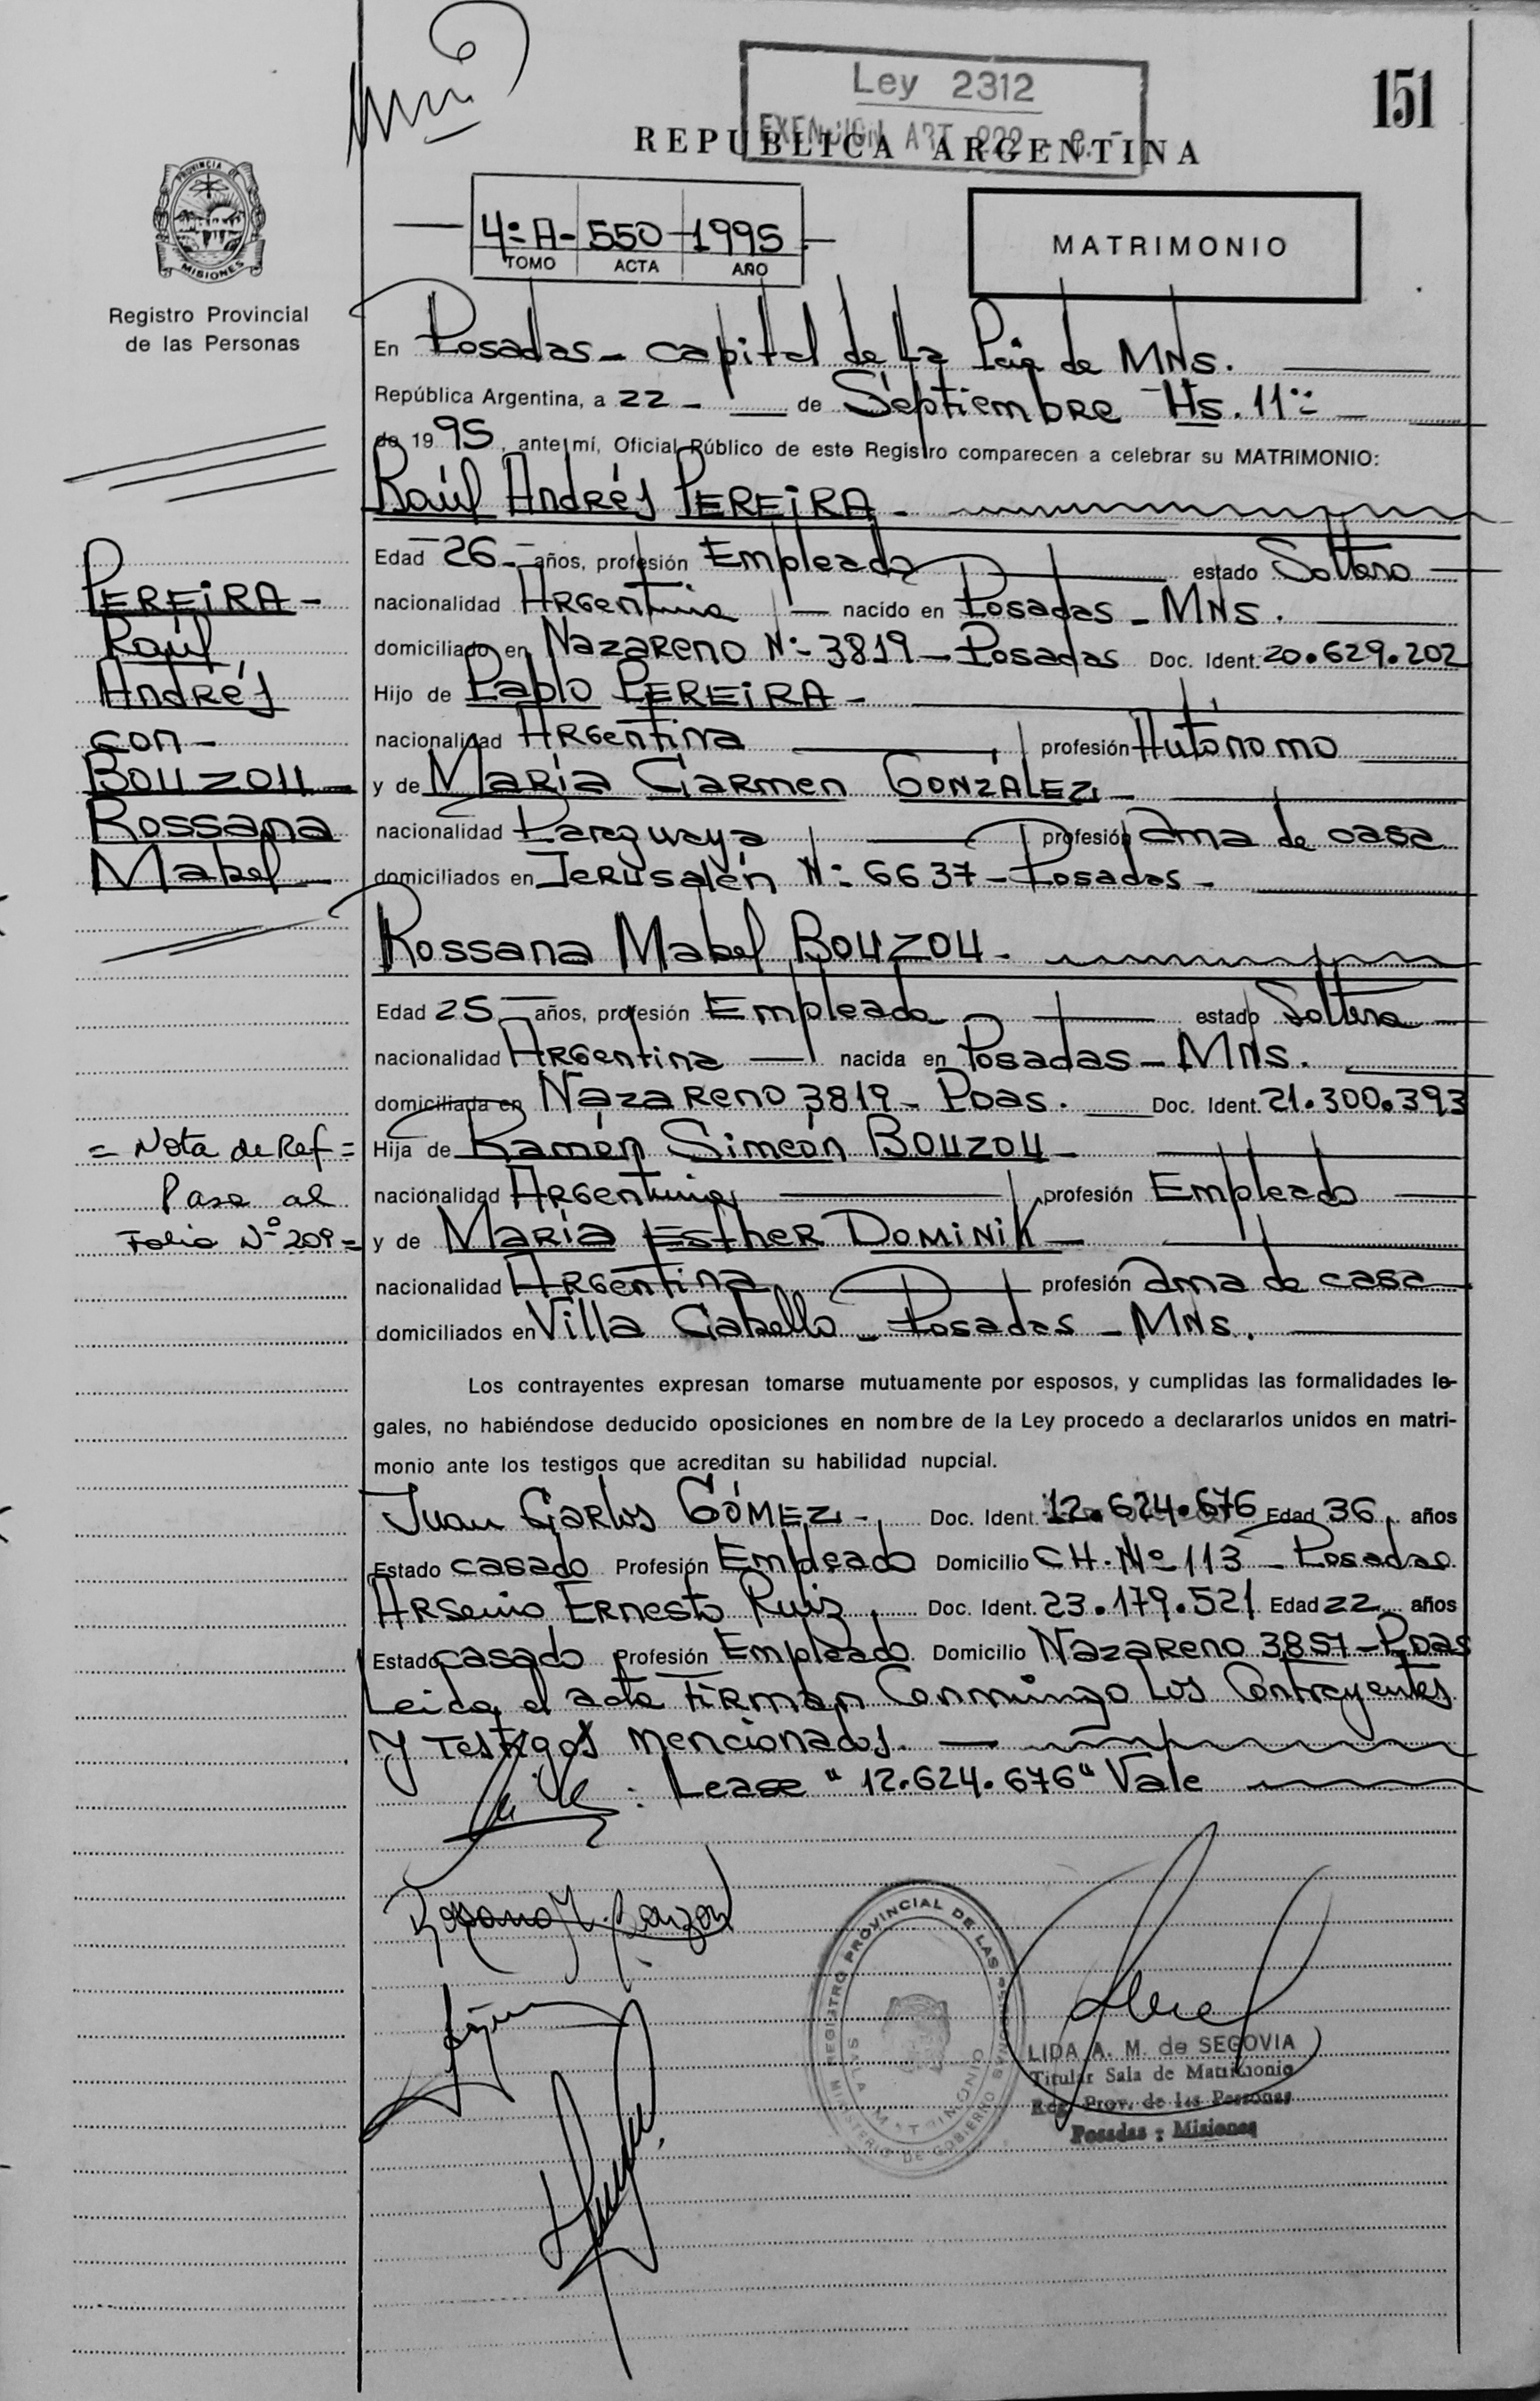 Ley 2312
EXENCION ART 222
151
REPUBLICA ARGENTINA
PROVINCIA DE
MISIONES
Registro Provincial
de las Personas
4º A - 550 - 1995
TOMO ACTA AÑO
MATRIMONIO
En Posadas - capital de la Pcia de MNS.
República Argentina, a 22 - de Septiembre Hs. 11
de 1995, ante mí, Oficial Público de este Registro comparecen a celebrar su MATRIMONIO:
Raúl Andrés PEREIRA -
Edad 26 - años, profesión Empleado estado Soltero
nacionalidad Argentina nacido en Posadas - MNS.
domiciliado en Nazareno Nº 3819 - Posadas Doc. Ident. 20.629.202
Hijo de Pablo PEREIRA -
nacionalidad Argentina profesión Autónomo
y de María Carmen GONZÁLEZ -
nacionalidad Paraguaya profesión ama de casa
domiciliados en Jerusalén Nº 6637 - Posadas -
PEREIRA -
Raúl
Andrés
con -
BOUZOU
Rossana
Mabel
Rossana Mabel BOUZOU -
Edad 25 años, profesión Empleada estado Soltera
nacionalidad Argentina nacida en Posadas - MNS.
domiciliada en Nazareno 3819 - Pdas. Doc. Ident. 21.300.393
Hija de Ramón Simeón BOUZOU -
nacionalidad Argentina profesión Empleado
y de María Esther DOMINIK -
nacionalidad Argentina profesión ama de casa
domiciliados en Villa Cabello - Posadas - MNS.
= Nota de Ref =
Pasa al
Folio Nº 209 =
Los contrayentes expresan tomarse mutuamente por esposos, y cumplidas las formalidades le-
gales, no habiéndose deducido oposiciones en nombre de la Ley procedo a declararlos unidos en matri-
monio ante los testigos que acreditan su habilidad nupcial.
Juan Carlos GÓMEZ - Doc. Ident. 12.624.676 Edad 36 años
Estado casado Profesión Empleado Domicilio CH. Nº 113 - Posadas
Arsenio Ernesto Ruiz, Doc. Ident. 23.179.521 Edad 22 años
Estado casado profesión Empleado Domicilio Nazareno 3857 - Pdas
Leída el acta Firman Conmigo los Contrayentes
y Testigos mencionados.
: Lease "12.624.676" Vale
REGISTRO PROVINCIAL DE LAS PERSONAS
SALA MATRIMONIO
MINISTERIO DE GOBIERNO
LIDA A. M. de SEGOVIA
Titular Sala de Matrimonio
Reg. Prov. de las Personas
Posadas - Misiones